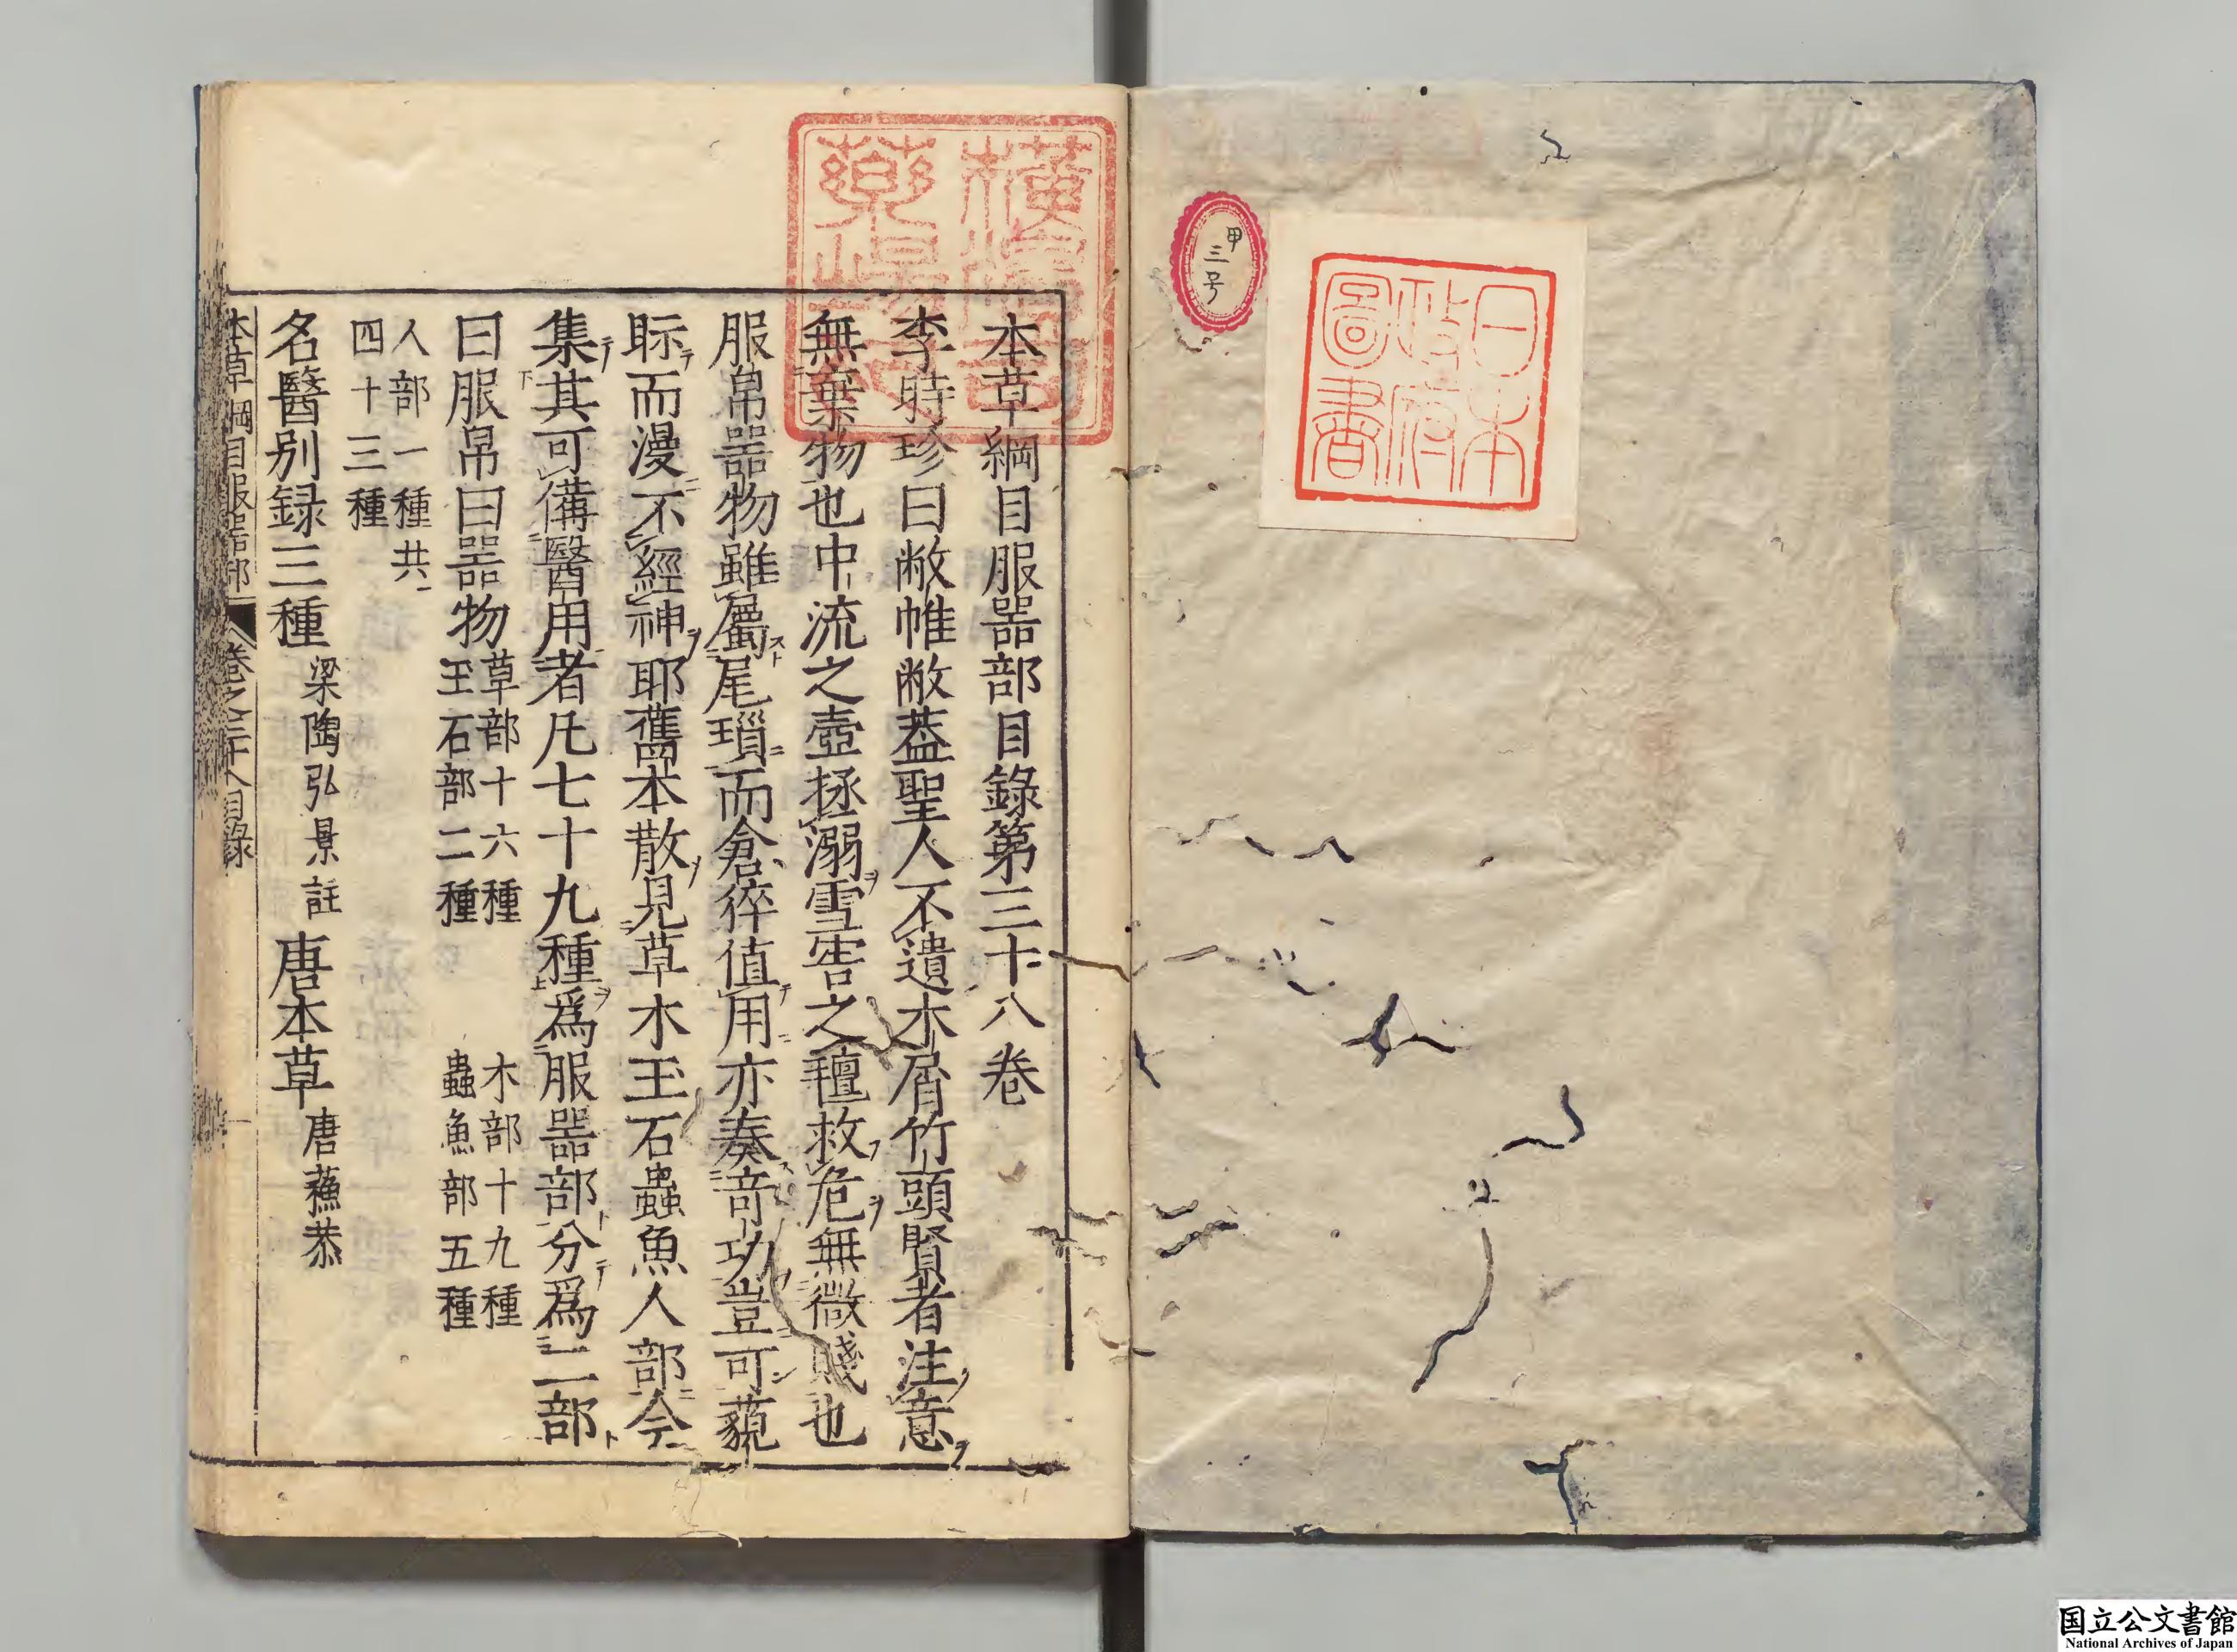 甲三号
日本
政府
圖書
本草綱目服器部目錄第三十八卷
李時珍曰敝帷敝蓋聖人不遺木屑竹頭賢者注意
無棄物也中流之壺拯溺雪窖之氊救危無微賤也
服帛器物雖屬尾瑣而倉猝值用亦奏竒功豈可藐
眎而漫不經神耶舊本散見草木玉石蟲魚人部今
集其可備醫用者凡七十九種爲服器部分爲二部
曰服帛曰器物
草部十六種 木部十九種
玉石部二種 蟲魚部五種
人部一種共
四十三種
名醫別録三種 梁陶弘景註 唐本草 唐蘓恭
本草綱目服器部 卷之三十八目錄
国立公文書館
National Archives of Japan